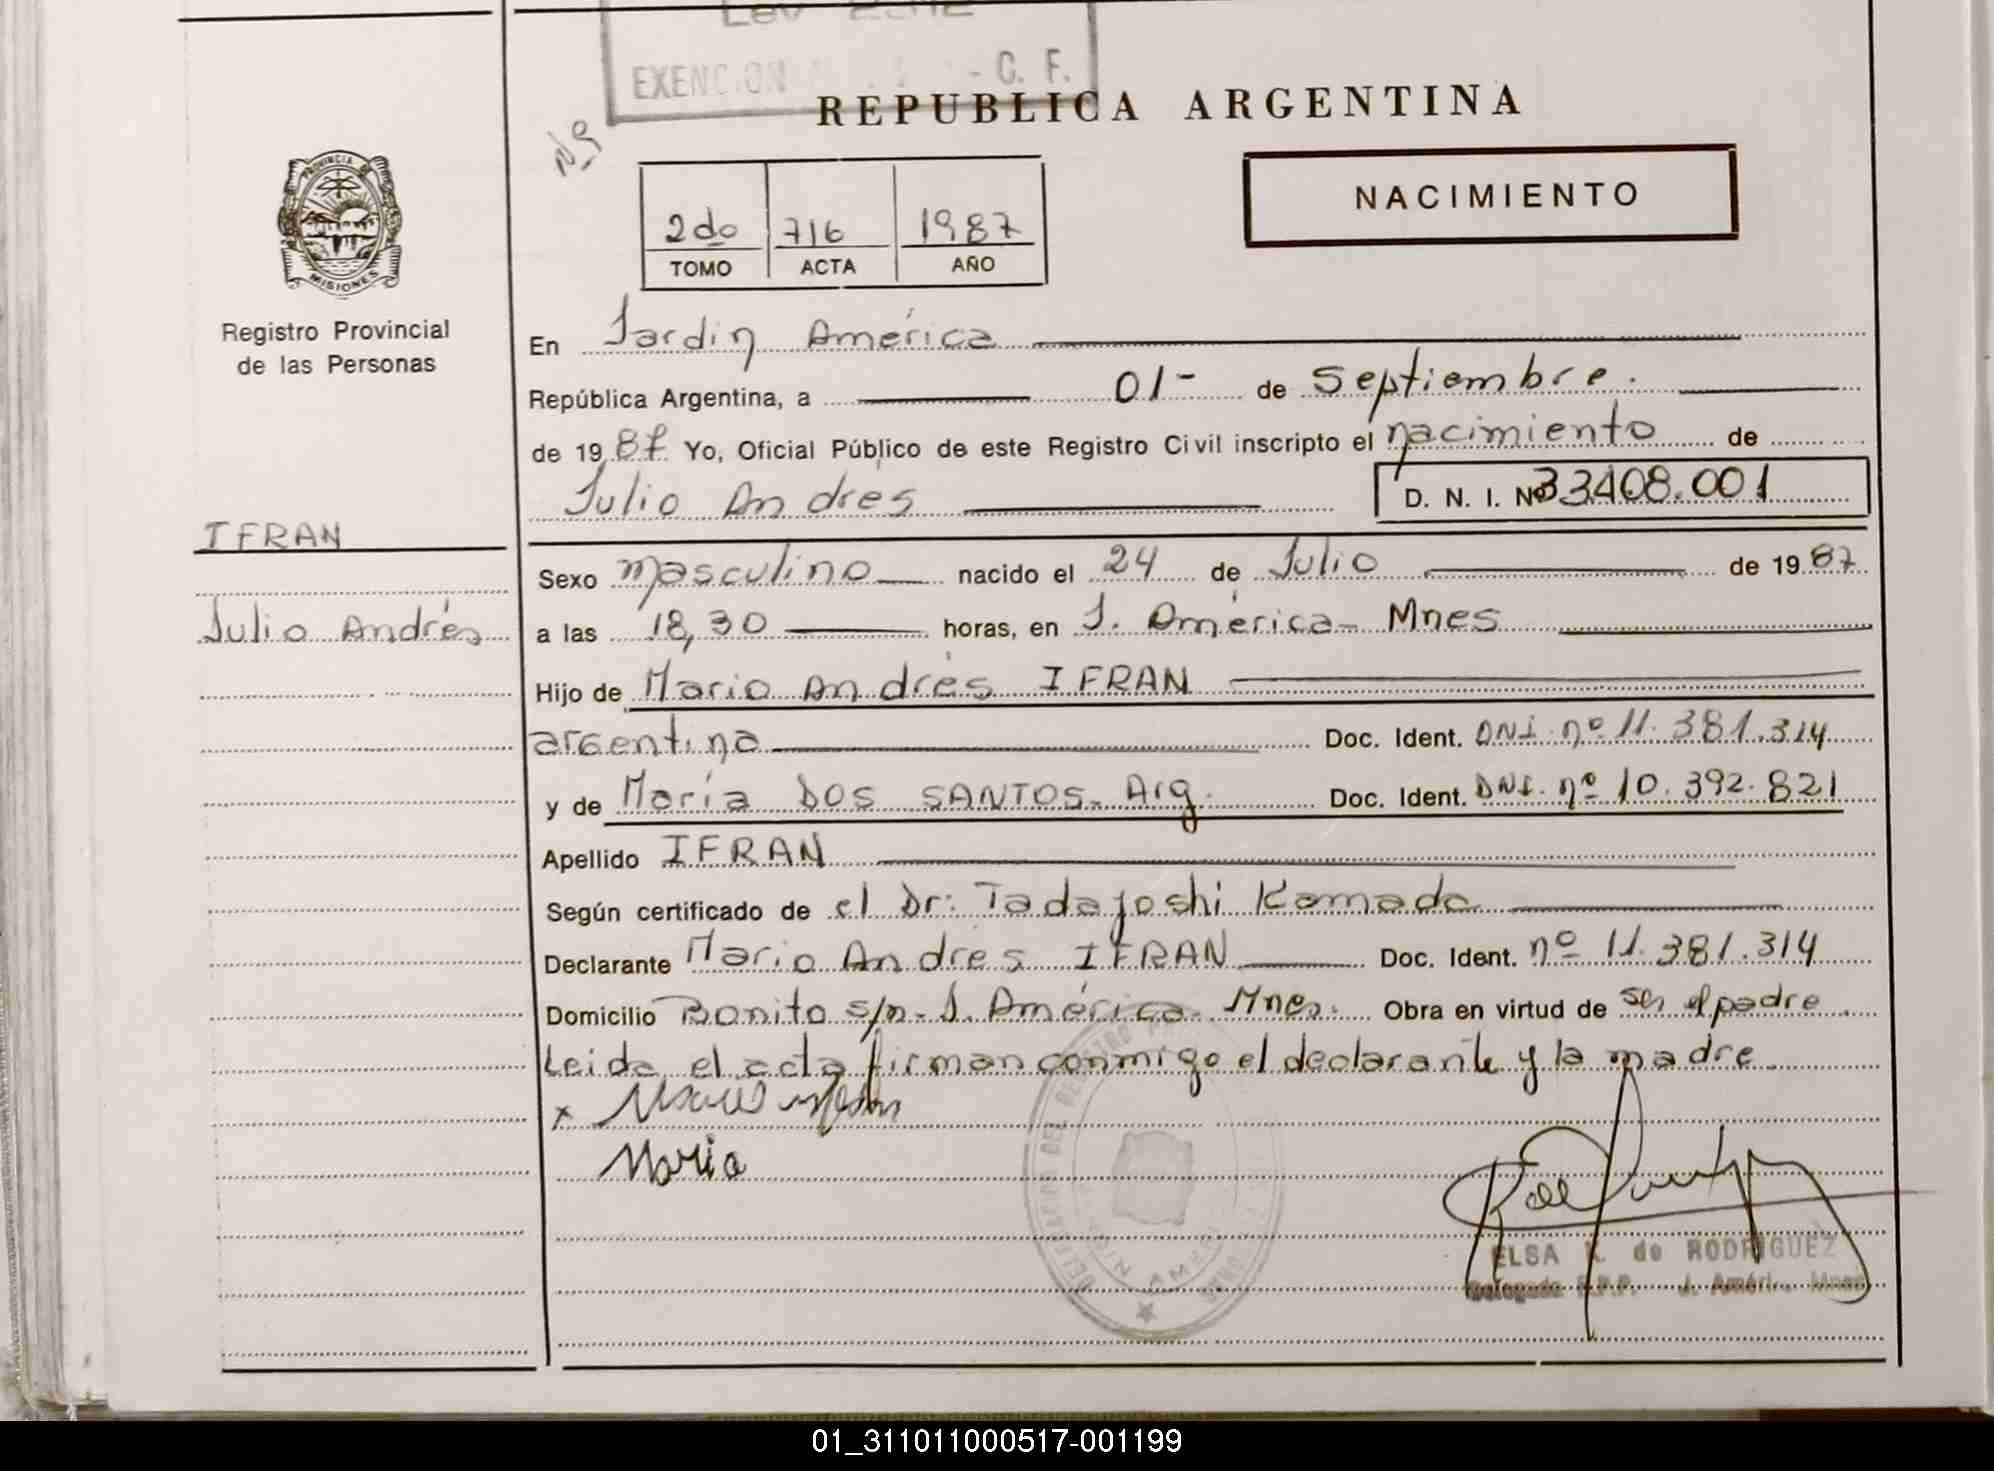 Ley 2372
EXENCION - C. F.
REPUBLICA ARGENTINA
Nº9
PROVINCIA DE
MISIONES
NACIMIENTO
2do 716 1987
TOMO ACTA AÑO
Registro Provincial
de las Personas
En Jardin América
República Argentina, a 01- de Septiembre.
de 1987 Yo, Oficial Público de este Registro Civil inscripto el nacimiento de
Julio Andres D. N. I. Nº 33408.001
IFRAN
Julio Andrés
Sexo masculino nacido el 24 de Julio de 1987
a las 18,30 horas, en J. América- Mnes
Hijo de Mario Andrés IFRAN
argentina Doc. Ident. DNI. nº 11.381.314
y de María DOS SANTOS- Arg. Doc. Ident. DNI. nº 10.392.821
Apellido IFRAN
Según certificado de el Dr: Tadayoshi Kamada
Declarante Mario Andrés IFRAN Doc. Ident. nº 11.381.314
Domicilio Bonito s/n- J. América- Mnes. Obra en virtud de ser el padre
Leida el acta firman conmigo el declarante y la madre
x
Maria
ELSA K. de RODRIGUEZ
Delegada R.P.P. J. Améri. Mnes
01_311011000517-001199